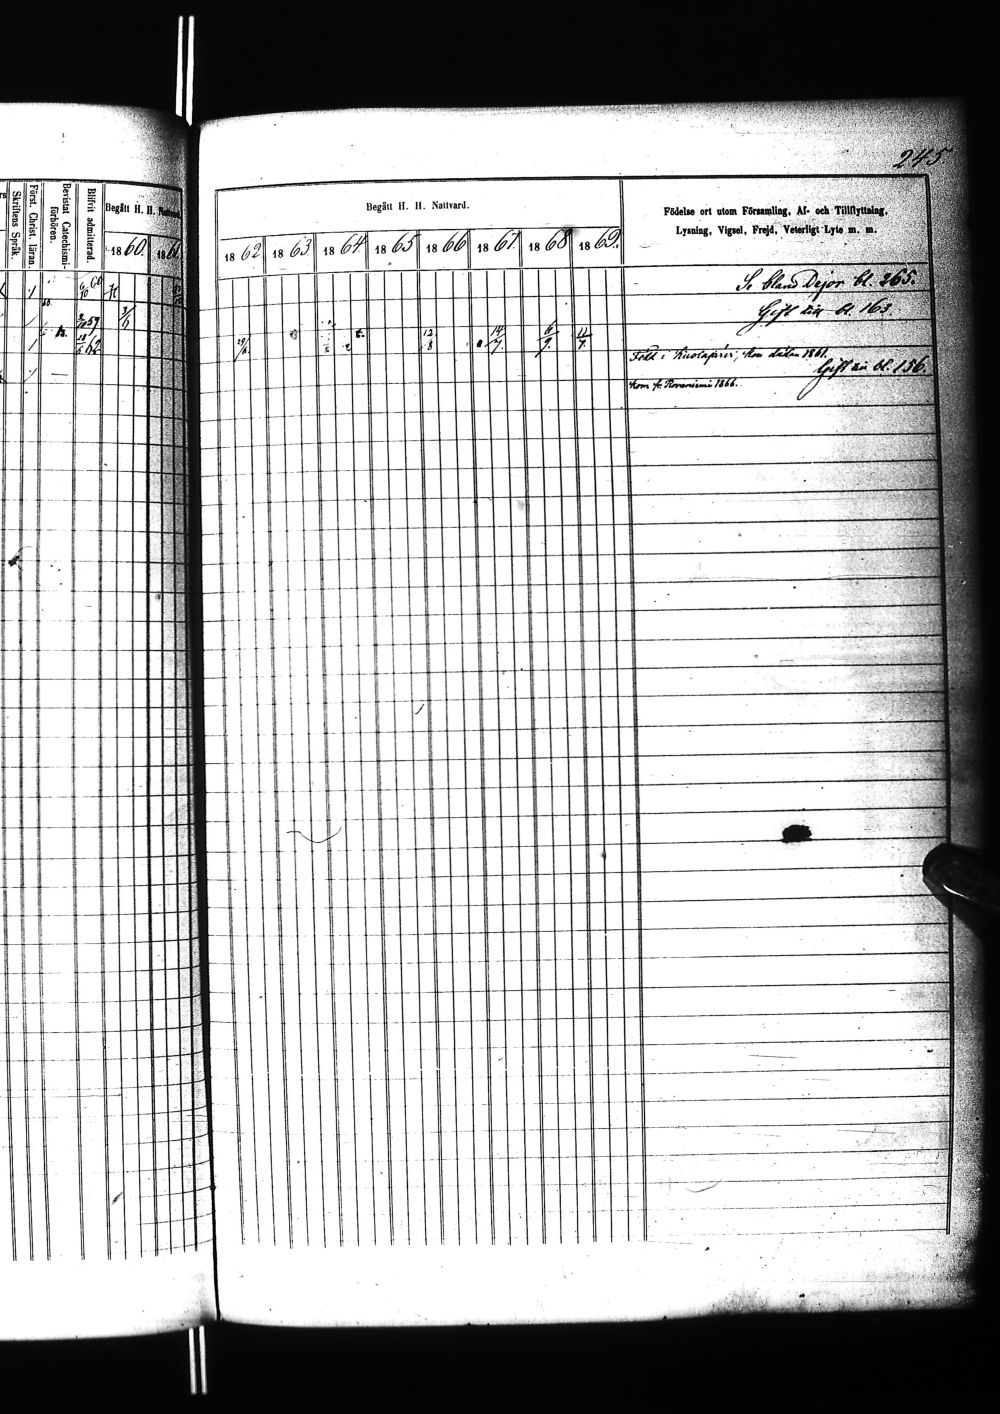 245
Skriftens Språk.
Först. Christ. läran.
Bevistat Catechismi-
förhören.
Blifvit admitterad.
Begått H. H. Nattvard.
1860. 1861.
Begått H. H. Nattvard.
1862 1863 1864 1865 1866 1867 1868 1869.
Födelse ort utom Församling, Af- och Tillflyttning,
Lysning, Vigsel, Frejd, Veterligt Lyte m. m.
Se bland Dejor bl. 265.
Gift till bl. 163.
12/8 14/7. 6/9. 11/7.
Född i Kuolajärvi, kom dädan 1861.
Gift bl. 156.
Kom fr. Rovaniemi 1866.